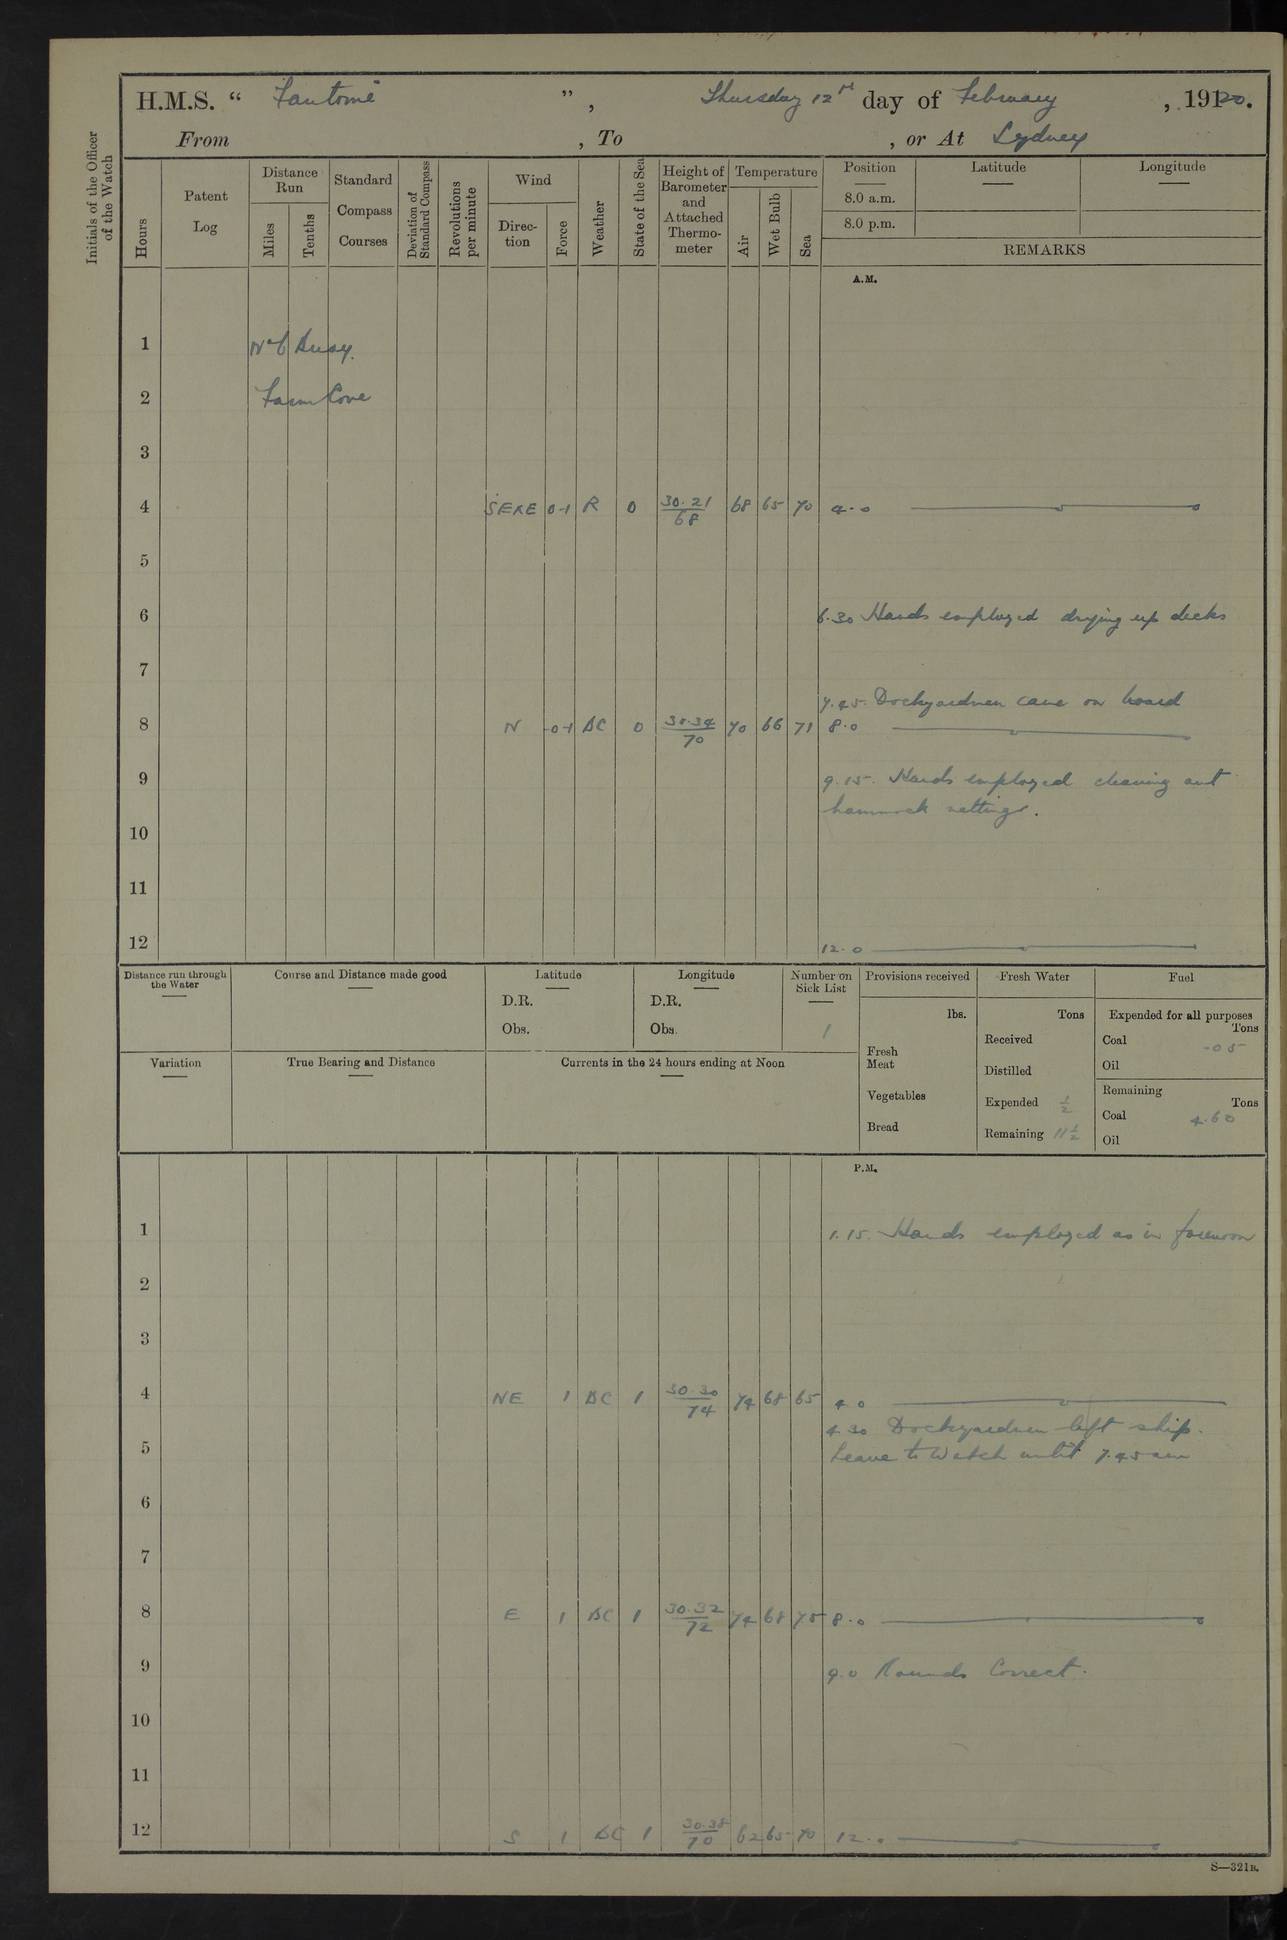 H.M.S. " Fantome ", Thursday 12th day of February, 1920.
From , To , or At Sydney
Initials of the Officer of the Watch
Hours
Patent Log
Distance Run
Miles
Tenths
Standard Compass Courses
Deviation of Standard Compass
Revolutions per minute
Wind
Direction
Force
Weather
State of the Sea
Height of Barometer and Attached Thermometer
Temperature
Air
Wet Bulb
Sea
Position Latitude Longitude
8.0 a.m.
8.0 p.m.
REMARKS
A.M.
1 No 6 Buoy.
2 Farm Cove
3
4 SExE 0-1 R 0 30.21/68 68 65 70 4.0
5
6 6.30 Hands employed drying up decks
7
7.45. Dockyardmen came on board
8 N 0-1 BC 0 30.34/70 70 66 71 8.0
9 9.15. Hands employed cleaning out
hammock nettings.
10
11
12 12.0
Distance run through the Water
Course and Distance made good
Latitude
D.R.
Obs.
Longitude
D.R.
Obs.
Number on Sick List
1
Provisions received
lbs.
Fresh Meat
Vegetables
Bread
Fresh Water
Tons
Received
Distilled
Expended 1/2
Remaining 11 1/2
Fuel
Expended for all purposes
Tons
Coal .05
Oil
Remaining
Tons
Coal 4.60
Oil
Variation
True Bearing and Distance
Currents in the 24 hours ending at Noon
P.M.
1 1.15. Hands employed as in forenoon
2
3
4 NE 1 BC 1 30.30/74 74 68 65 4.0
4.30 Dockyardmen left ship.
5 Leave to Watch until 7.45 am
6
7
8 E 1 BC 1 30.32/72 74 68 75 8.0
9 9.0 Rounds Correct.
10
11
12 S 1 BC 1 30.38/70 62 65 70 12.0
S—321B.